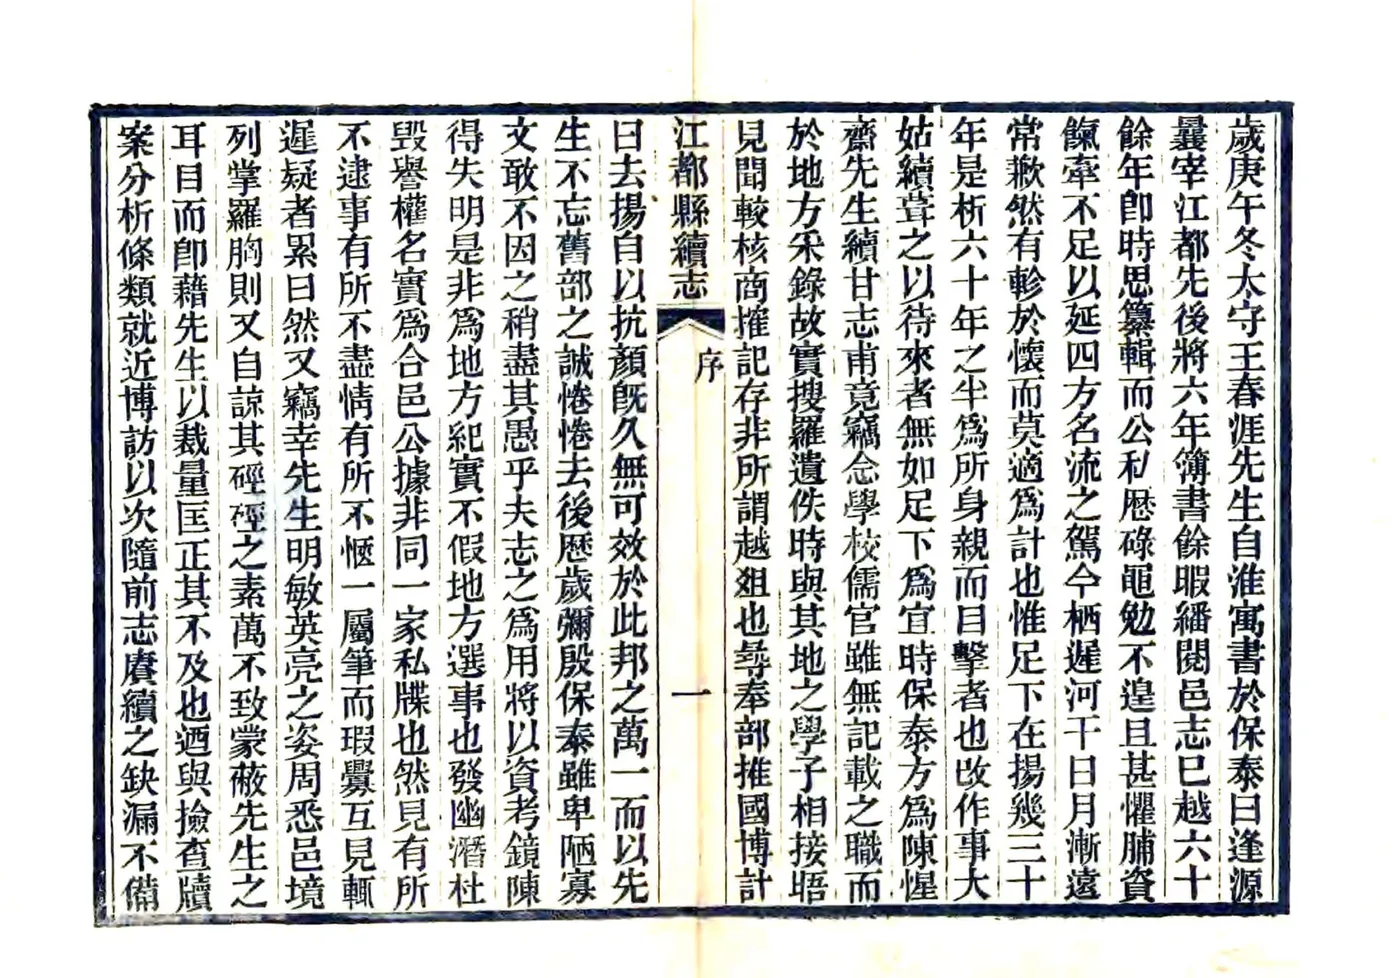 歲庚午冬太守王春涯先生自淮寓書於保泰曰逢源
曩宰江都先後將六年簿書餘暇繙閱邑志已越六十
餘年卽時思纂輯而公私歷碌黽勉不遑且甚懼脯資
餼牽不足以延四方名流之駕今栖遲河干日月漸遠
常歉然有軫於懷而莫適爲計也惟足下在揚幾三十
年是析六十年之半爲所身親而目擊者也改作事大
姑續葺之以待來者無如足下爲宜時保泰方爲陳惺
齋先生續甘志甫竟竊念學校儒官雖無記載之職而
於地方采錄故實搜羅遺佚時與其地之學子相接晤
見聞較核商搉記存非所謂越爼也尋奉部推國博計
江都縣續志
序
一
日去揚自以抗顏旣久無可效於此邦之萬一而以先
生不忘舊部之誠惓惓去後歷歲彌殷保泰雖卑陋寡
文敢不因之稍盡其愚乎夫志之爲用將以資考鏡陳
得失明是非爲地方紀實不假地方選事也發幽潛杜
毀譽權名實爲合邑公據非同一家私牒也然見有所
不逮事有所不盡情有所不愜一屬筆而瑕釁互見輒
遲疑者累日然又竊幸先生明敏英亮之姿周悉邑境
列掌羅胸則又自諒其硜硜之素萬不致蒙蔽先生之
耳目而卽藉先生以裁量匡正其不及也迺與撿查牘
案分析條類就近博訪以次隨前志賡續之缺漏不備